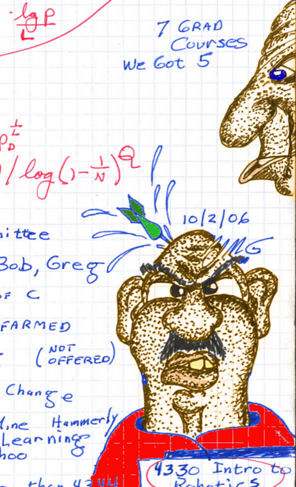 lg P
L
7 GRAD
Courses
We Got 5
/ log(1 - 1/N)^Q
10/2/06
ittee
Bob, Greg
OF C
FARMED
(NOT
OFFERED)
Change
Hammerly
Learning
hoo
4330 Intro to
Robotics
than 4344